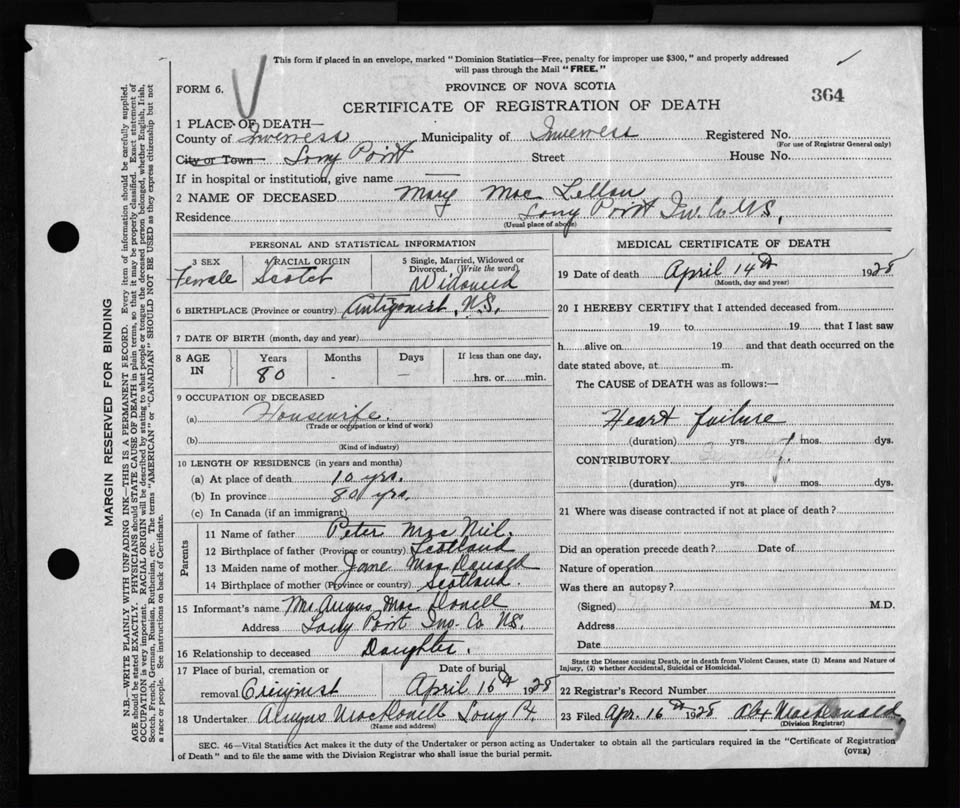 This form if placed in an envelope, marked "Dominion Statistics—Free, penalty for improper use $300," and properly addressed
will pass through the Mail "FREE."
FORM 6.
PROVINCE OF NOVA SCOTIA
364
CERTIFICATE OF REGISTRATION OF DEATH
1 PLACE OF DEATH—
County of Inverness Municipality of Inverness Registered No.
(For use of Registrar General only)
City or Town Long Point Street House No.
If in hospital or institution, give name —
2 NAME OF DECEASED Mary Mac Lellan
Residence Long Point Inv. Co NS,
(Usual place of above)
PERSONAL AND STATISTICAL INFORMATION
3 SEX 4 RACIAL ORIGIN 5 Single, Married, Widowed or
Divorced. (Write the word)
Female Scotch Widowed
6 BIRTHPLACE (Province or country) Antigonish, N.S.
7 DATE OF BIRTH (month, day and year)
8 AGE IN Years Months Days If less than one day,
80 - - hrs. or min.
9 OCCUPATION OF DECEASED
(a) Housewife.
(Trade or occupation or kind of work)
(b)
(Kind of industry)
10 LENGTH OF RESIDENCE (in years and months)
(a) At place of death 10 yrs.
(b) In province 80 yrs.
(c) In Canada (if an immigrant)
Parents
11 Name of father Peter Mac Neil.
12 Birthplace of father (Province or country) Scotland
13 Maiden name of mother Jane Mac
14 Birthplace of mother (Province or country) Scotland.
15 Informant's name Mrs Angus Mac Donell
Address Long Point Inv. Co NS.
16 Relationship to deceased Daughter.
17 Place of burial, cremation or Date of burial
removal Creignish April 16th 1928
18 Undertaker Angus MacDonell Long Pt.
(Name and address)
MEDICAL CERTIFICATE OF DEATH
19 Date of death April 14th 1928
(Month, day and year)
20 I HEREBY CERTIFY that I attended deceased from
19 to 19 that I last saw
h alive on 19 and that death occurred on the
date stated above, at m.
The CAUSE of DEATH was as follows:—
Heart failure
(duration) yrs. mos. dys.
CONTRIBUTORY
(duration) yrs. mos. dys.
21 Where was disease contracted if not at place of death?
Did an operation precede death? Date of
Nature of operation
Was there an autopsy?
(Signed) M.D.
Address
Date
State the Disease causing Death, or in death from Violent Causes, state (1) Means and Nature of
Injury, (2) whether Accidental, Suicidal or Homicidal.
22 Registrar's Record Number
23 Filed Apr. 16th 1928 Alex MacDonald,
(Division Registrar)
SEC. 46—Vital Statistics Act makes it the duty of the Undertaker or person acting as Undertaker to obtain all the particulars required in the "Certificate of Registration
of Death" and to file the same with the Division Registrar who shall issue the burial permit.
(OVER)
MARGIN RESERVED FOR BINDING
N.B.—WRITE PLAINLY WITH UNFADING INK—THIS IS A PERMANENT RECORD. Every item of information should be carefully supplied.
AGE should be stated EXACTLY. PHYSICIANS should STATE CAUSE OF DEATH in plain terms, so that it may be properly classified. Exact statement of
OCCUPATION is very important. RACIAL ORIGIN will be described by stating to what people or tongue the deceased person belonged, whether English, Irish,
Scotch, French, German, Russian, Ruthenian, etc. The terms "AMERICAN" or "CANADIAN" SHOULD NOT BE USED as they express citizenship but not
a race or people. See instructions on back of Certificate.